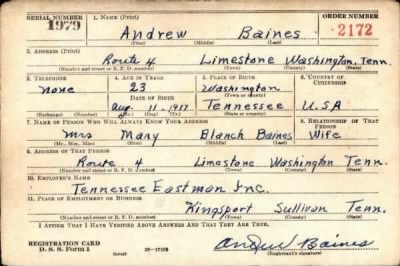 SERIAL NUMBER 1. NAME (Print) ORDER NUMBER
1979 Andrew Baines 2172
(First) (Middle) (Last)
2. ADDRESS (Print)
Route 4 Limestone Washington, Tenn.
(Number and street or R. F. D. number) (Town) (County) (State)
3. TELEPHONE 4. AGE IN YEARS 5. PLACE OF BIRTH 6. COUNTRY OF CITIZENSHIP
none 23 Washington
DATE OF BIRTH (Town or county)
Aug. 11, 1917 Tennessee U.S.A
(Exchange) (Number) (Mo.) (Day) (Yr.) (State or country)
7. NAME OF PERSON WHO WILL ALWAYS KNOW YOUR ADDRESS 8. RELATIONSHIP OF THAT PERSON
Mrs Mary Blanch Baines Wife
(Mr., Mrs., Miss) (First) (Middle) (Last)
9. ADDRESS OF THAT PERSON
Route 4 Limestone Washington Tenn.
(Number and street or R. F. D. number) (Town) (County) (State)
10. EMPLOYER'S NAME
Tennessee Eastman Inc.
11. PLACE OF EMPLOYMENT OR BUSINESS
Kingsport Sullivan Tenn.
(Number and street or R. F. D. number) (Town) (County) (State)
I AFFIRM THAT I HAVE VERIFIED ABOVE ANSWERS AND THAT THEY ARE TRUE.
REGISTRATION CARD
D. S. S. Form 1 (over) Andrew Baines
(Registrant's signature)